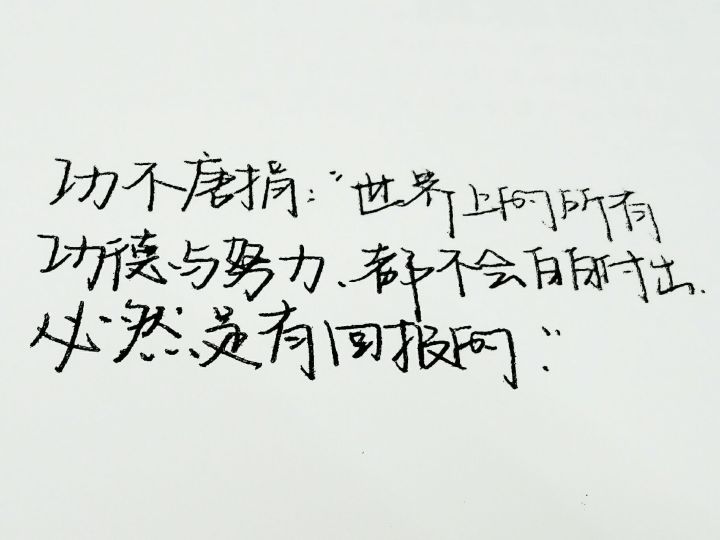 功不唐捐："世界上的所有
功德与努力、都不会白白付出.
必然是有回报的."